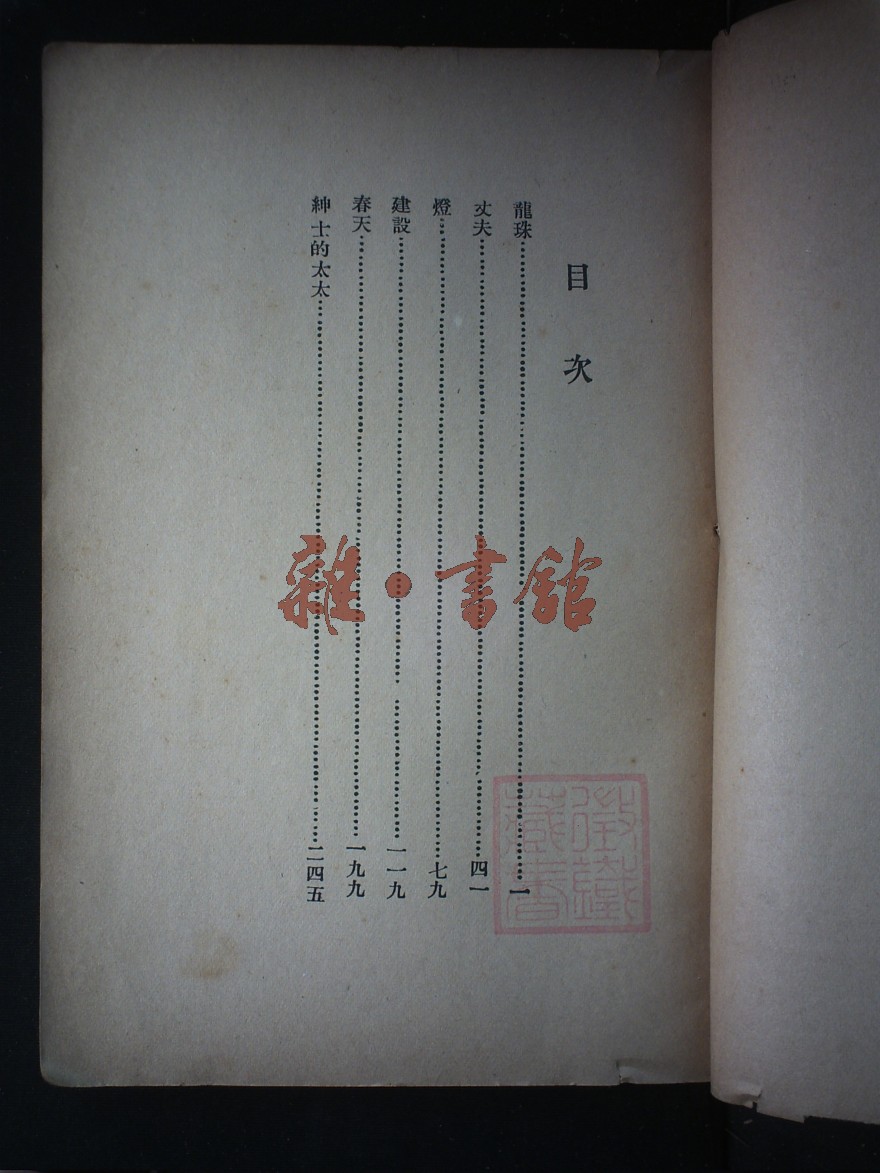 目次
龍珠……一
丈夫……四一
燈……七九
建設……一一九
春天……一九九
紳士的太太……二四五
雜·書館